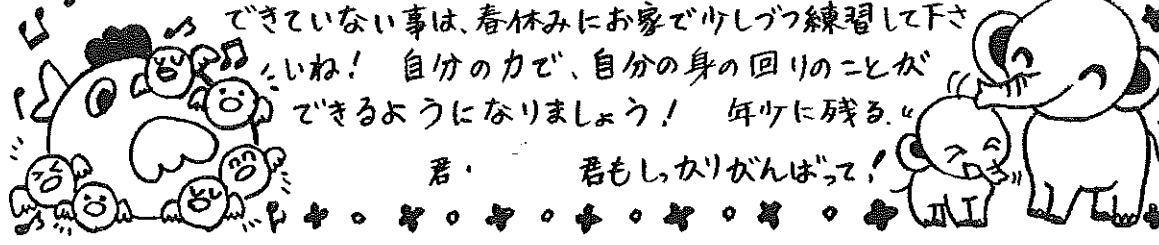 できていない事は、春休みにお家で少しづつ練習して下さ
いね! 自分の力で、自分の身の回りのことが
できるようになりましょう! 年少に残る
君・ 君もしっかりがんばって!